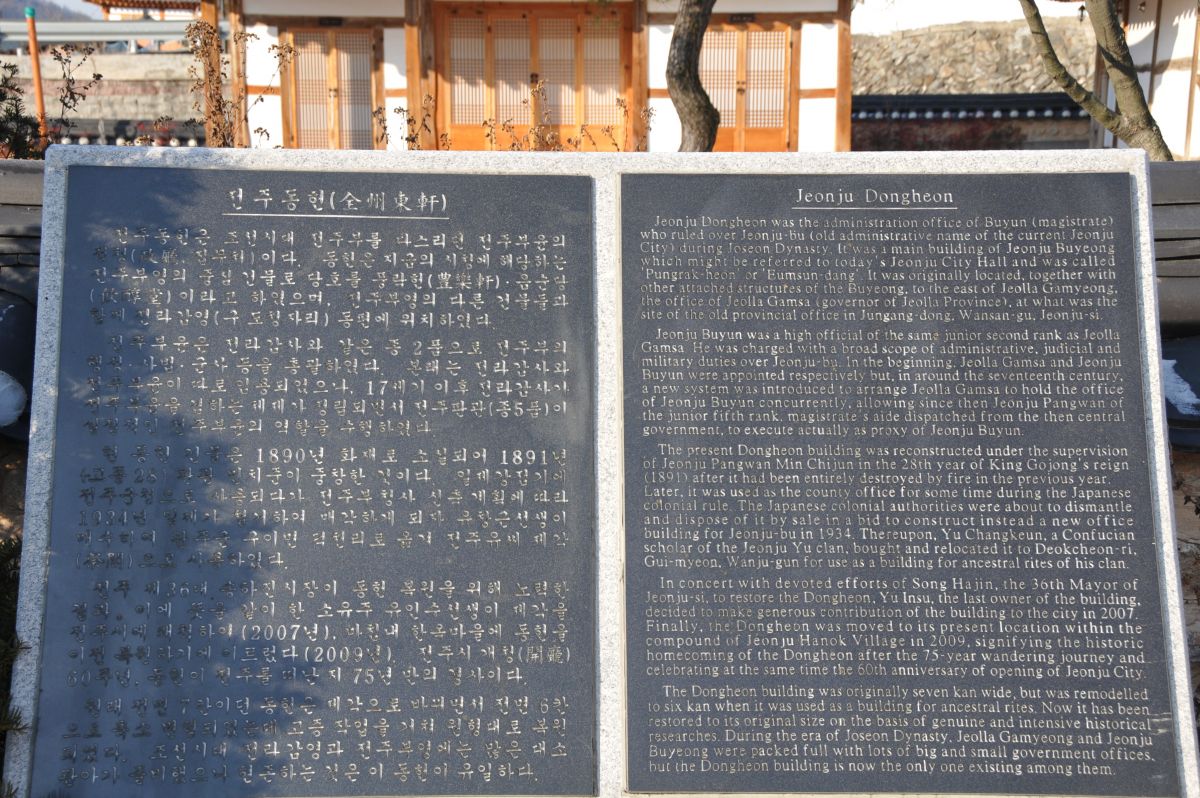 전주동헌(全州東軒)
전주동헌은 조선시대 전주부를 다스리던 전주부윤의
이다. 동헌은 지금의 시청에 해당하는
전주부영의 중심 건물로 당호를 풍락헌(豊樂軒)·음순당
이라고 하였으며, 전주부영의 다른 건물들과
함께 전라감영(구 도청자리) 동편에 위치하였다.
전주부윤은 전라감사와 같은 종 2품으로 전주부의
행정·사법·군사 등을 총괄하였다. 본래는 전라감사와
전주부윤이 따로 임용되었으나, 17세기 이후 전라감사가
전주부윤을 겸하는 체제가 정립되면서 전주판관(종5품)이
실질적인 전주부윤의 역할을 수행하였다.
현 동헌 건물은 1890년 화재로 소실되어 1891년
(고종 28) 판관 민치준이 중창한 것이다. 일제강점기에
전주군청으로 사용되다가 전주부청사 신축 계획에 따라
1934년 매각하게 되자 유항근선생이
구이면 덕천리로 옮겨 전주유씨 제각
(祭閣)으로 사용하였다.
전주 제36대 송하진시장이 동헌 복원을 위해 노력한
결과, 이에 뜻을 같이 한 소유주 유인수선생이 제각을
전주시에 (2007년), 마침내 한옥마을에 동헌을
이전 복원하기에 이르렀다(2009년). 전주시 개청(開廳)
60주년, 동헌이 전주를 떠난 지 75년 만의 경사이다.
원래 정면 7칸이던 동헌은 제각으로 바뀌면서 정면 6칸
으로 축소 변형되었는데 고증 작업을 거쳐 원형대로 복원
되었다. 조선시대 전라감영과 전주부영에는 많은 대소
관아가 즐비했으나 현존하는 것은 이 동헌이 유일하다.
Jeonju Dongheon
Jeonju Dongheon was the administration office of Buyun (magistrate)
who ruled over Jeonju-bu (old administrative name of the current Jeonju
City) during Joseon Dynasty. It was a main building of Jeonju Buyeong
which might be referred to today's Jeonju City Hall and was called
'Pungrak-heon' or 'Eumsun-dang'. It was originally located, together with
other attached structures of the Buyeong, to the east of Jeolla Gamyeong,
the office of Jeolla Gamsa (governor of Jeolla Province), at what was the
site of the old provincial office in Jungang-dong, Wansan-gu, Jeonju-si.
Jeonju Buyun was a high official of the same junior second rank as Jeolla
Gamsa. He was charged with a broad scope of administrative, judicial and
military duties over Jeonju-bu. In the beginning, Jeolla Gamsa and Jeonju
Buyun were appointed respectively but, in around the seventeenth century,
a new system was introduced to arrange Jeolla Gamsa to hold the office
of Jeonju Buyun concurrently, allowing since then Jeonju Pangwan of
the junior fifth rank, magistrate's aide dispatched from the then central
government, to execute actually as proxy of Jeonju Buyun.
The present Dongheon building was reconstructed under the supervision
of Jeonju Pangwan Min Chijun in the 28th year of King Gojong's reign
(1891) after it had been entirely destroyed by fire in the previous year.
Later, it was used as the county office for some time during the Japanese
colonial rule. The Japanese colonial authorities were about to dismantle
and dispose of it by sale in a bid to construct instead a new office
building for Jeonju-bu in 1934. Thereupon, Yu Changkeun, a Confucian
scholar of the Jeonju Yu clan, bought and relocated it to Deokcheon-ri,
Gui-myeon, Wanju-gun for use as a building for ancestral rites of his clan.
In concert with devoted efforts of Song Hajin, the 36th Mayor of
Jeonju-si, to restore the Dongheon, Yu Insu, the last owner of the building,
decided to make generous contribution of the building to the city in 2007.
Finally, the Dongheon was moved to its present location within the
compound of Jeonju Hanok Village in 2009, signifying the historic
homecoming of the Dongheon after the 75-year wandering journey and
celebrating at the same time the 60th anniversary of opening of Jeonju City.
The Dongheon building was originally seven kan wide, but was remodelled
to six kan when it was used as a building for ancestral rites. Now it has been
restored to its original size on the basis of genuine and intensive historical
researches. During the era of Joseon Dynasty, Jeolla Gamyeong and Jeonju
Buyeong were packed full with lots of big and small government offices,
but the Dongheon building is now the only one existing among them.